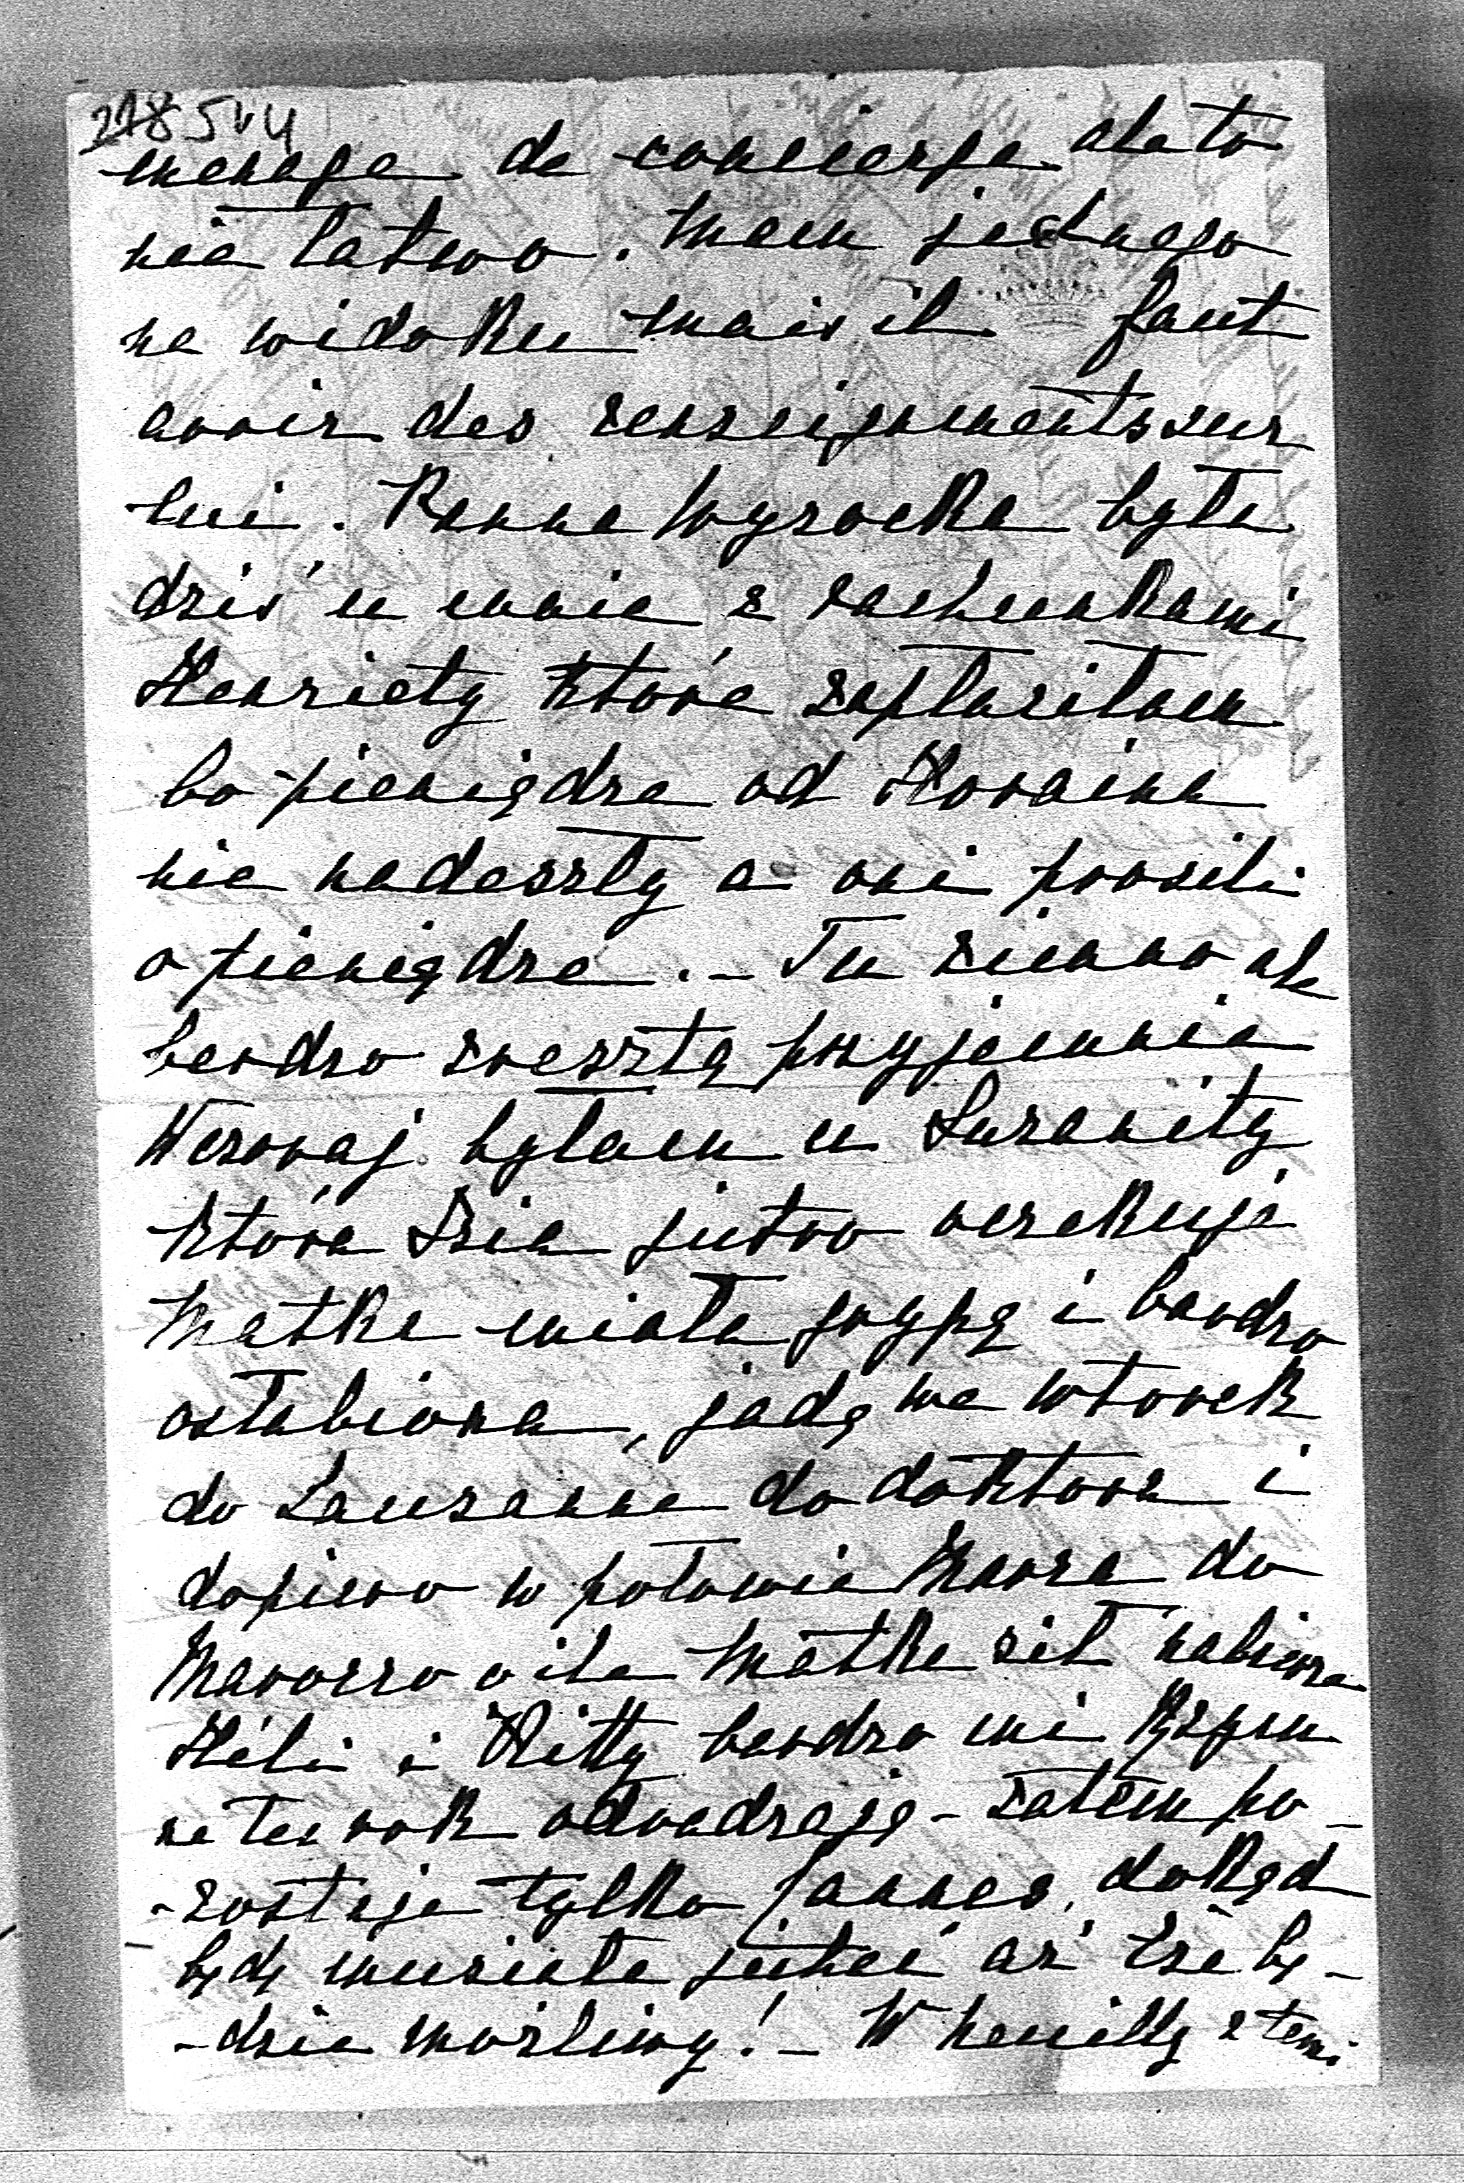 218 5v4
menage de concierge ale to
nie łatwo. Mam jednego
na widoku mais il faut
avoir des renseignements sur
lui. Panna Wysocka była
dziś u mnie z rachunkami
Henriety które zapłaciłam
bo pieniądze od Horaina
nie nadeszły a oni prosili
o pieniądze. – Tu zimno ale
bardzo zresztą przyjemnie
Wczoraj byłam u Suzanity
która Izia jutro oczekuje
Matka miała grypę i bardzo
osłabiona, jadę we wtorek
do Lausanne do doktora i
dopiero w połowie Marca do
Marocco o ile Matka sił nabierze
Héli i Kitty bardzo mi
na ten rok odradzają – zatem po-
-zostaje tylko Cannes, dokąd
będę musiała jechać aż tze bę-
-dzie możliwy! – W Neuilly z temi